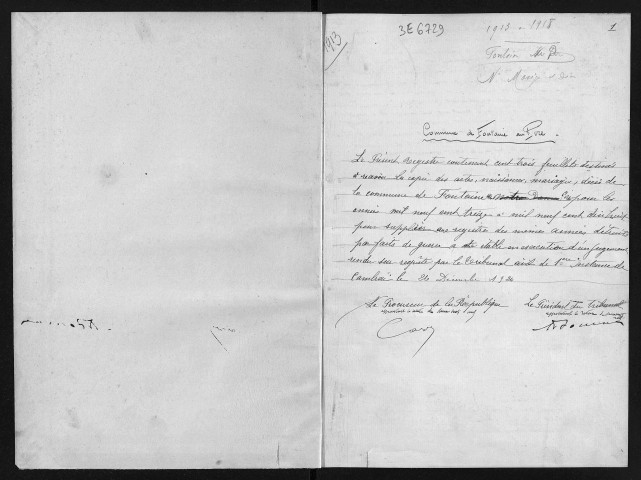 1913
3E6729
1913 - 1918
1
N. Mariage Décès
Commune de Fontaine au Pire.
Le Présent Registre contenant cent trois feuillets destinés
à recevoir la copie des actes, naissances, mariages, décès de
la commune de Fontaine notre Dame pour les
années mil neuf cent treize à mil neuf cent dix huit
pour suppléer au registre des mêmes années détruit
par faits de guerre a été établi en exécution d'un jugement
rendu sur requête par le Tribunal civil de 1ère instance de
Cambrai le 24 Décembre 1920
Le Procureur de la République
Le Président du Tribunal